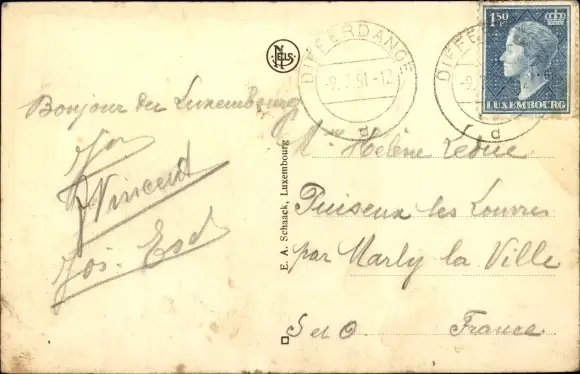 Bonjour du Luxembourg
Vincent
Jos. Esch
NELS
E. A. Schaack, Luxembourg
DIFFERDANGE
-9.7.51-12
d
DIFFERDANGE
-9.
d
1,50 F
LUXEMBOURG
Mme Hélène Leduc
Puiseux les Louvres
par Marly la Ville
S et O France